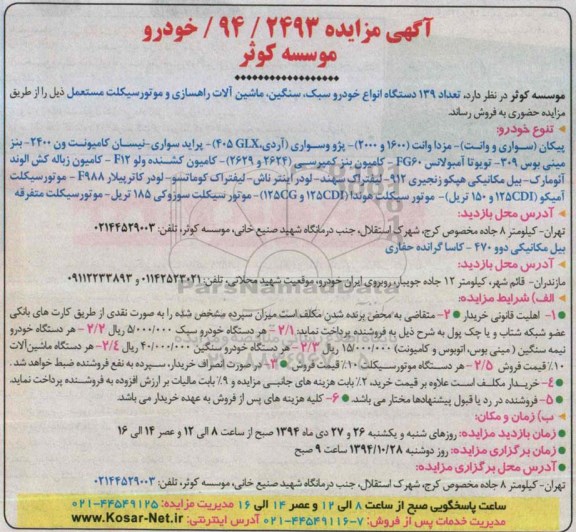 آگهی مزایده ۲۴۹۳ / ۹۴ / خودرو
موسسه کوثر
موسسه کوثر در نظر دارد، تعداد ۱۳۹ دستگاه انواع خودرو سبک، سنگین، ماشین آلات راهسازی و موتورسیکلت مستعمل ذیل را از طریق
مزایده حضوری به فروش رساند.
- تنوع خودرو:
پیکان (سواری و وانت)- مزدا وانت (۱۶۰۰ و ۲۰۰۰)- پژو وسواری (آردی، GLX، ۴۰۵)- پراید سواری-نیسان کامیونت ون ۲۴۰۰- بنز
مینی بوس ۳۰۹- تویوتا آمبولانس FG۶۰ - کامیون بنز کمپرسی (۲۶۲۴ و ۲۶۲۹)- کامیون کشنده ولو F۱۲ - کامیون زباله کش الوند
آئومارک- بیل مکانیکی هپکو زنجیری ۹۱۲- لیفتراک سهند- لودر اینتر ناش- لیفتراک کوماتسو- لودر کاترپیلار F۹۸۸ - موتورسیکلت
آمیکو (۱۲۵CDI و ۱۵۰ تریل)- موتورسیکلت هوندا (۱۲۵CDI و ۱۲۵CG)- موتور سیکلت سوزوکی ۱۸۵ تریل- موتورسیکلت متفرقه
- آدرس محل بازدید:
تهران- کیلومتر ۸ جاده مخصوص کرج، شهرک استقلال، جنب درمانگاه شهید صنیع خانی، موسسه کوثر، تلفن: ۰۲۱۴۴۵۲۹۰۰۳
بیل مکانیکی دوو ۴۷۰ - کاسا گرانده حفاری
- آدرس محل بازدید:
مازندران- قائم شهر، کیلومتر ۱۲ جاده جویبار، روبروی ایران خودرو، موقعیت شهید محلاتی، تلفن: ۰۱۱۴۲۵۲۳۰۲۱ و ۰۹۱۱۲۲۳۳۸۹۳
- الف) شرایط مزایده:
۱- اهلیت قانونی خریدار ۲- متقاضی به محض برنده شدن مکلف است میزان سپرده مشخص شده را به صورت نقدی از طریق کارت های بانکی
عضو شبکه شتاب و یا چک پول به شرح ذیل به فروشنده پرداخت نماید: ۲/۱- هر دستگاه خودرو سبک ۵/۰۰۰/۰۰۰ ریال ۲/۲- هر دستگاه خودرو
نیمه سنگین (مینی بوس، اتوبوس و کامیونت) ۱۵/۰۰۰/۰۰۰ ریال ۲/۳- هر دستگاه خودرو سنگین ۴۰/۰۰۰/۰۰۰ ریال ۲/۴- هر دستگاه ماشین‌آلات
۱۰٪ قیمت فروش ۲/۵- هر دستگاه موتورسیکلت ۱۰٪ قیمت فروش ۳- در صورت انصراف خریدار، سپرده به نفع فروشنده ضبط خواهد شد.
۴- خریدار مکلف است علاوه بر قیمت خرید، ۲٪ بابت هزینه های جانبی مزایده و ۹٪ بابت مالیات بر ارزش افزوده به فروشنده پرداخت نماید.
۵- فروشنده در رد یا قبول پیشنهادها مختار می باشد. ۶- کلیه هزینه های پس از فروش به عهده خریدار می باشد.
- ب) زمان و مکان:
زمان بازدید مزایده: روزهای شنبه و یکشنبه ۲۶ و ۲۷ دی ماه ۱۳۹۴ صبح از ساعت ۸ الی ۱۲ و عصر ۱۴ الی ۱۶
زمان برگزاری مزایده: روز دوشنبه ۱۳۹۴/۱۰/۲۸ ساعت ۹ صبح
آدرس محل برگزاری مزایده:
تهران- کیلومتر ۸ جاده مخصوص کرج، شهرک استقلال، جنب درمانگاه شهید صنیع خانی، موسسه کوثر، تلفن: ۰۲۱۴۴۵۲۹۰۰۳
ساعت پاسخگویی صبح از ساعت ۸ الی ۱۲ و عصر ۱۴ الی ۱۶ مدیریت مزایده: ۴۴۵۴۹۱۲۵-۰۲۱
مدیریت خدمات پس از فروش: ۷-۴۴۵۴۹۱۱۶-۰۲۱ آدرس اینترنتی: www.Kosar-Net.ir
ParsNamadData